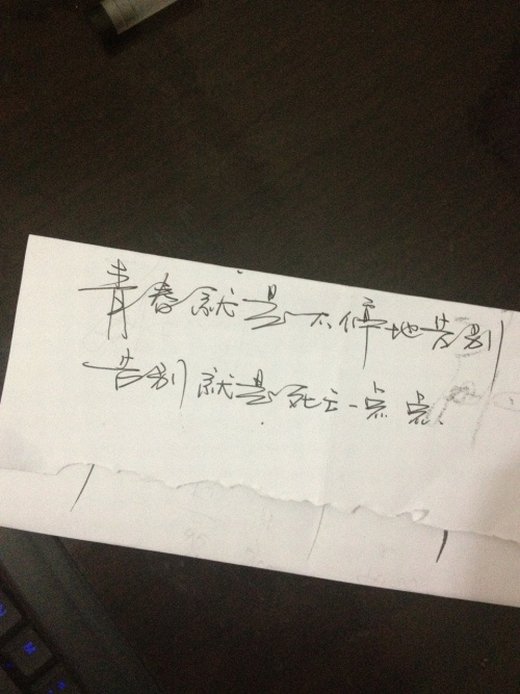 青春就是不停地告别
告别就是死亡一点点
M